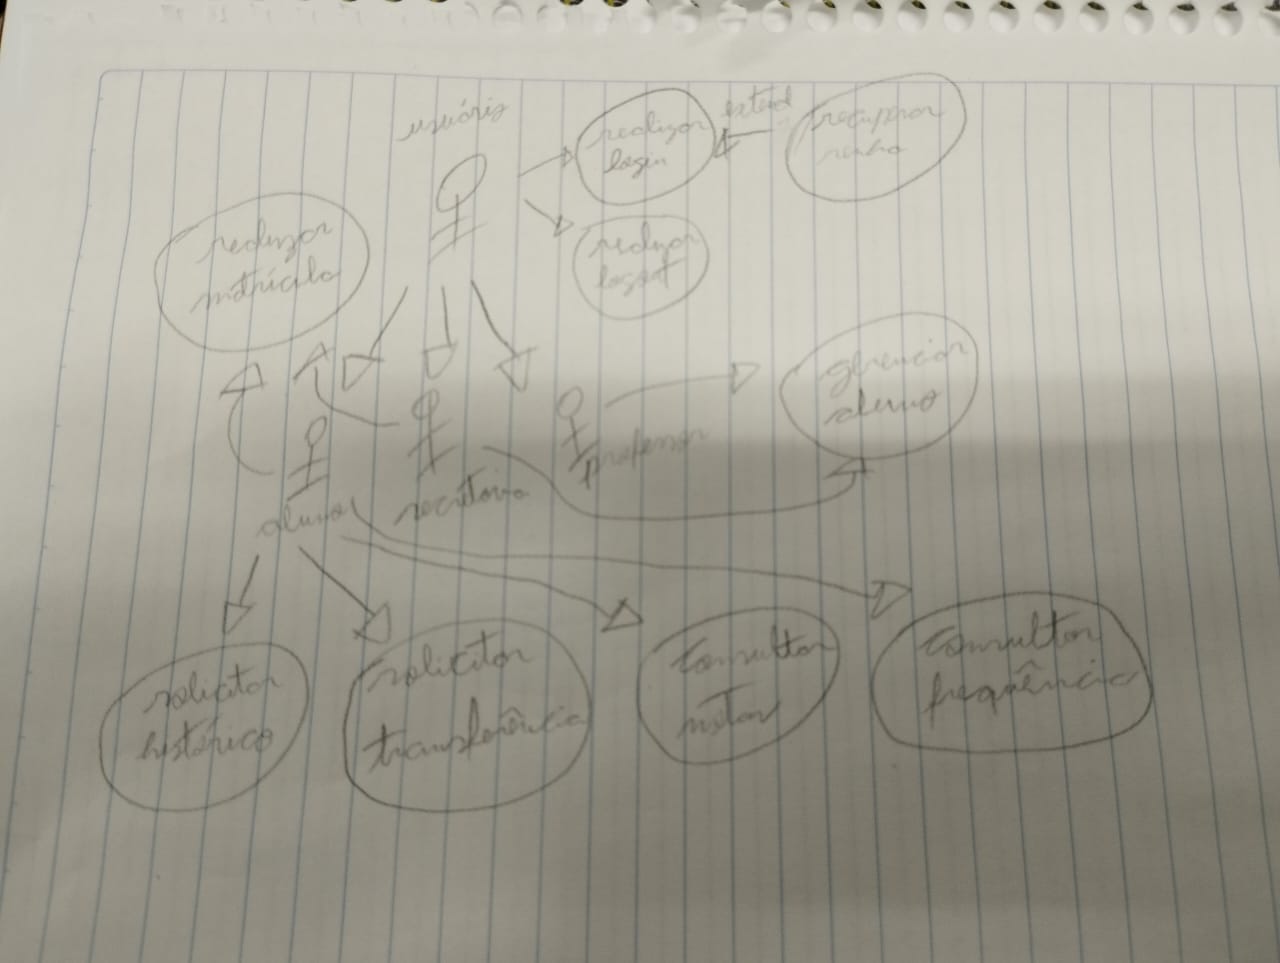 usuário
realizar
login
extend
recuperar
senha
realizar
matrícula
realizar
logout
gerenciar
aluno
professor
secretaria
aluno
solicitar
histórico
solicitar
transferência
consultar
notas
consultar
frequência